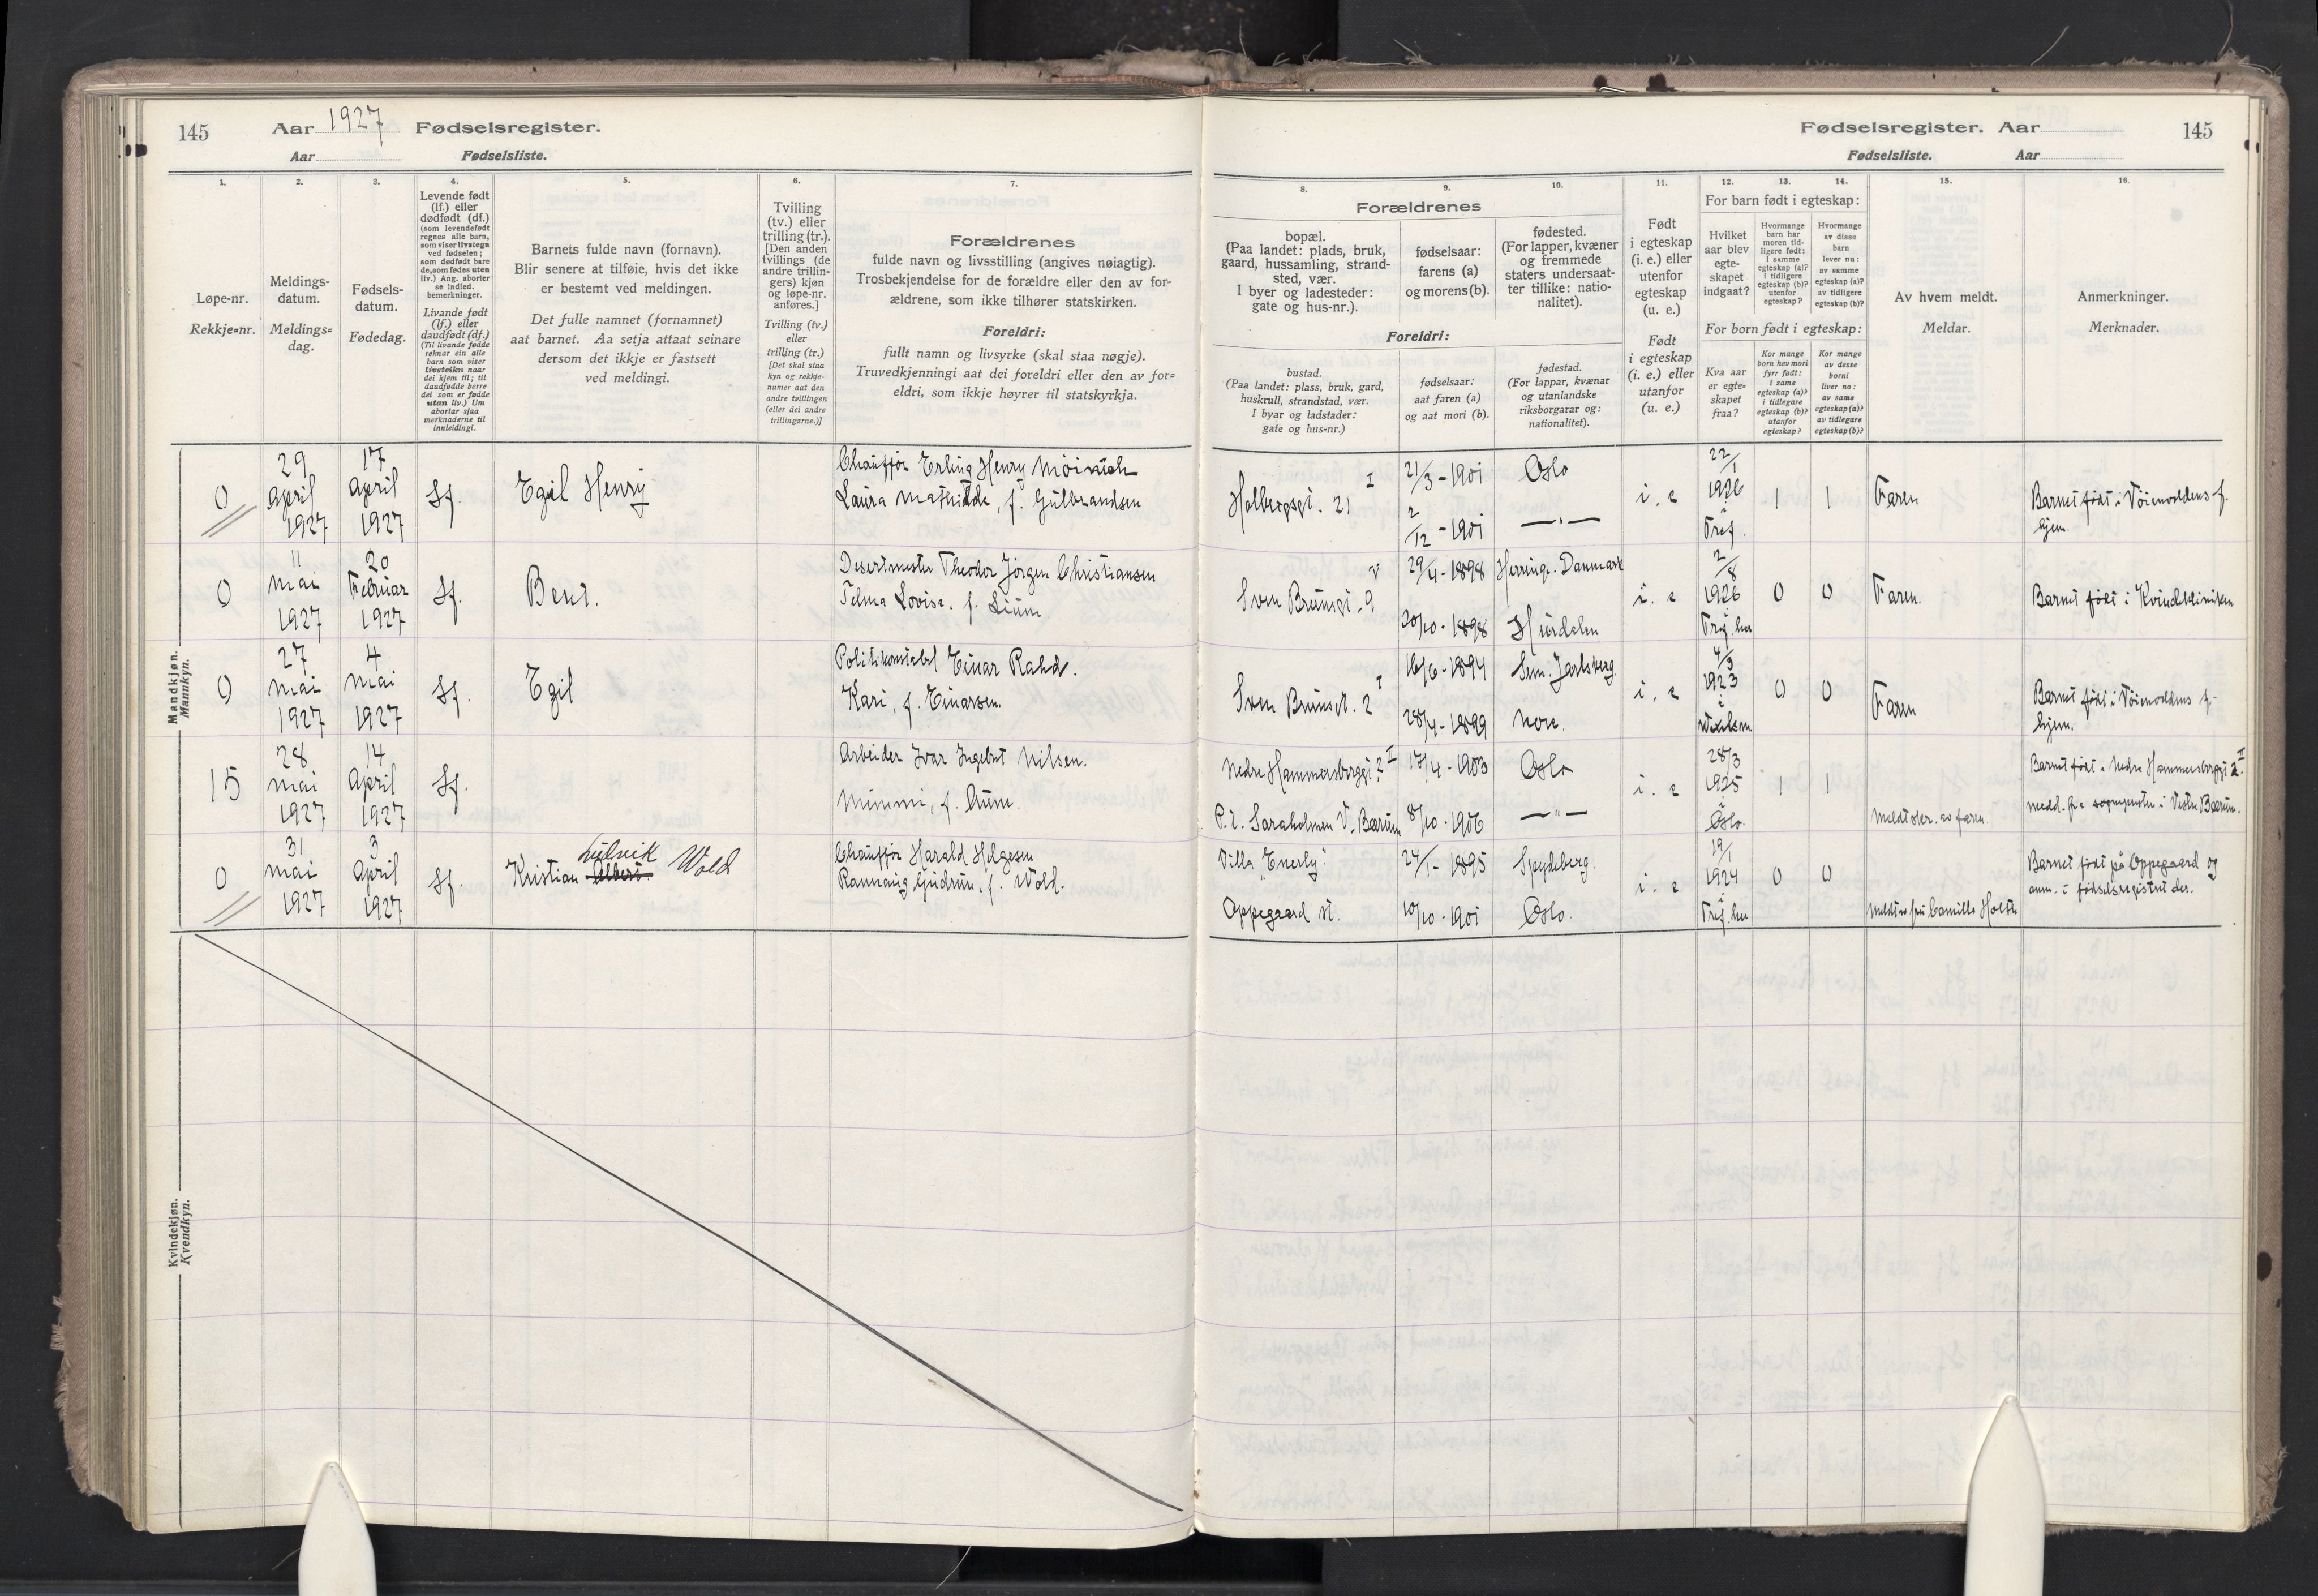 145
Aar 1927 Fødselsregister.
Aar Fødselsliste.
1.
Løpe-nr.
Rekkje=nr.
2.
Meldings-
datum.
Meldings=
dag.
3.
Fødsels-
datum.
Fødedag.
4.
Levende født
(lf.) eller
dødfødt (df.)
(som levendefødt
regnes alle barn,
som viser livstegn
ved fødselen;
som dødfødt bare
de, som fødes uten
liv.) Ang. aborter
se indled.
bemerkninger.
Livande født
(lf.) eller
daudfødt (df.)
(Til livande fødde
reknar ein alle
barn som viser
livsteikn naar
dei kjem til; til
daudfødde berre
dei som er fødde
utan liv.) Um
abortar sjaa
merknaderne til
innleidingi.
5.
Barnets fulde navn (fornavn).
Blir senere at tilføie, hvis det ikke
er bestemt ved meldingen.
Det fulle namnet (fornamnet)
aat barnet. Aa setja attaat seinare
dersom det ikkje er fastsett
ved meldingi.
6.
Tvilling
(tv.) eller
trilling (tr.).
[Den anden
tvillings (de
andre trillin-
gers) kjøn
og løpe-nr.
anføres.]
Tvilling (tv.)
eller
trilling (tr.)
[Det skal staa
kyn og rekkje-
numer aat den
andre tvillingen
(eller dei andre
trillingarne.)]
7.
Forældrenes
fulde navn og livsstilling (angives nøiagtig).
Trosbekjendelse for de forældre eller den av for-
ældrene, som ikke tilhører statskirken.
Foreldri:
fullt namn og livsyrke (skal staa nøgje).
Truvedkjenningi aat dei foreldri eller den av for=
eldri, som ikkje høyrer til statskyrkja.
Mandkjøn.
Mannkyn.
0 29 April 1927 17 April 1927 Lf. Egil Henry
Chauffør Erling Henry
Laura Mathilde, f. Gulbrandsen
0 11 Mai 1927 20 Februar 1927 Lf. Bent.
Theodor Jørgen Christiansen
Telma Lovise, f. Lium
0 27 Mai 1927 4 Mai 1927 Lf. Egil
Politikonstabel Einar
Kari, f. Einarsen.
15 28 Mai 1927 14 April 1927 Lf.
Arbeider Ivar Ingebret Nilsen.
Mimmi, f. Aune.
0 31 Mai 1927 3 April 1927 Lf
Ludvik
Kristian Albert. Wold
Chauffør Harald Helgesen
Rannaug Gudrun, f. Wold.
Kvindekjøn.
Kvendkyn.
Fødselsregister. Aar 145
Fødselsliste. Aar
8.
Forældrenes
bopæl.
(Paa landet: plads, bruk,
gaard, hussamling, strand-
sted, vær.
I byer og ladesteder:
gate og hus-nr.).
Foreldri:
bustad.
(Paa landet: plass, bruk, gard,
huskrull, strandstad, vær.
I byar og ladstader:
gate og hus=nr.)
9.
fødselsaar:
farens (a)
og morens (b).
fødselsaar:
aat faren (a)
og aat mori (b).
10.
fødested.
(For lapper, kvæner
og fremmede
staters undersaat-
ter tillike: natio-
nalitet).
fødestad.
(For lappar, kvænar
og utanlandske
riksborgarar og:
nationalitet).
11.
Født
i egteskap
(i. e.) eller
utenfor
egteskap
(u. e.)
Født
i egteskap
(i. e.) eller
utanfor
(u. e.)
12. 13. 14.
For barn født i egteskap:
Hvilket
aar blev
egte-
skapet
indgaat?
Hvormange
barn har
moren tid-
ligere født:
i samme
egteskap (a)?
i tidligere
egteskap (b)?
utenfor
egteskap?
Hvormange
av disse
barn
lever nu:
av samme
egteskap (a)?
av tidligere
egteskap (b)?
For born født i egteskap:
Kva aar
er egte=
skapet
fraa?
Kor mange
born hev mori
fyrr født:
i same
egteskap (a)?
i tidlegare
egteskap (b)?
utanfor
egteskap?
Kor mange
av desse
borni
liver no:
av same
egteskap (a)?
av tidlegare
egteskap (b)?
15.
Av hvem meldt.
Meldar.
16.
Anmerkninger.
Merknader.
Holbergsgt. 21 I 21/3-1901 Oslo i. e 22/1 1926 1 1 Faren
2/12-1901 —"— Trif.
Barnet født i Vøienvoldens f.
hjem.
Sven Brunsgt. 9 V 29/4-1898 Danmark i. e 2/8 1926 0 0 Faren.
20/10-1898 Hurdalen Trif. her
Barnet født i Kvindeklinikken
Sven Brunsgt. 2 I 16/6-1894 Sem. Jarlsberg i. e 4/3 1923 0 0 Faren
28/4-1899 Nore.
Barnet født i Vøienvoldens f.
hjem.
Nedre Hammersborggt. 2 II 17/4-1903 Oslo i. e 28/3 1925 i Oslo 1 1
P.t. Saraholmen V. Bærum 8/10-1906 —"—
Meldt skr. av faren.
Barnet født i Nedre Hammersborggt 2 II.
Medd. fra sognepresten i Vestre Bærum.
Villa "Enerly" 24/1-1895 Spydeberg. i. e 19/1 1924 0 0
Oppegaard st. 10/10-1901 Oslo. Trif. her
Meldt av fru Camilla Holth
Barnet født på Oppegaard og
anm. i fødselsregistret der.